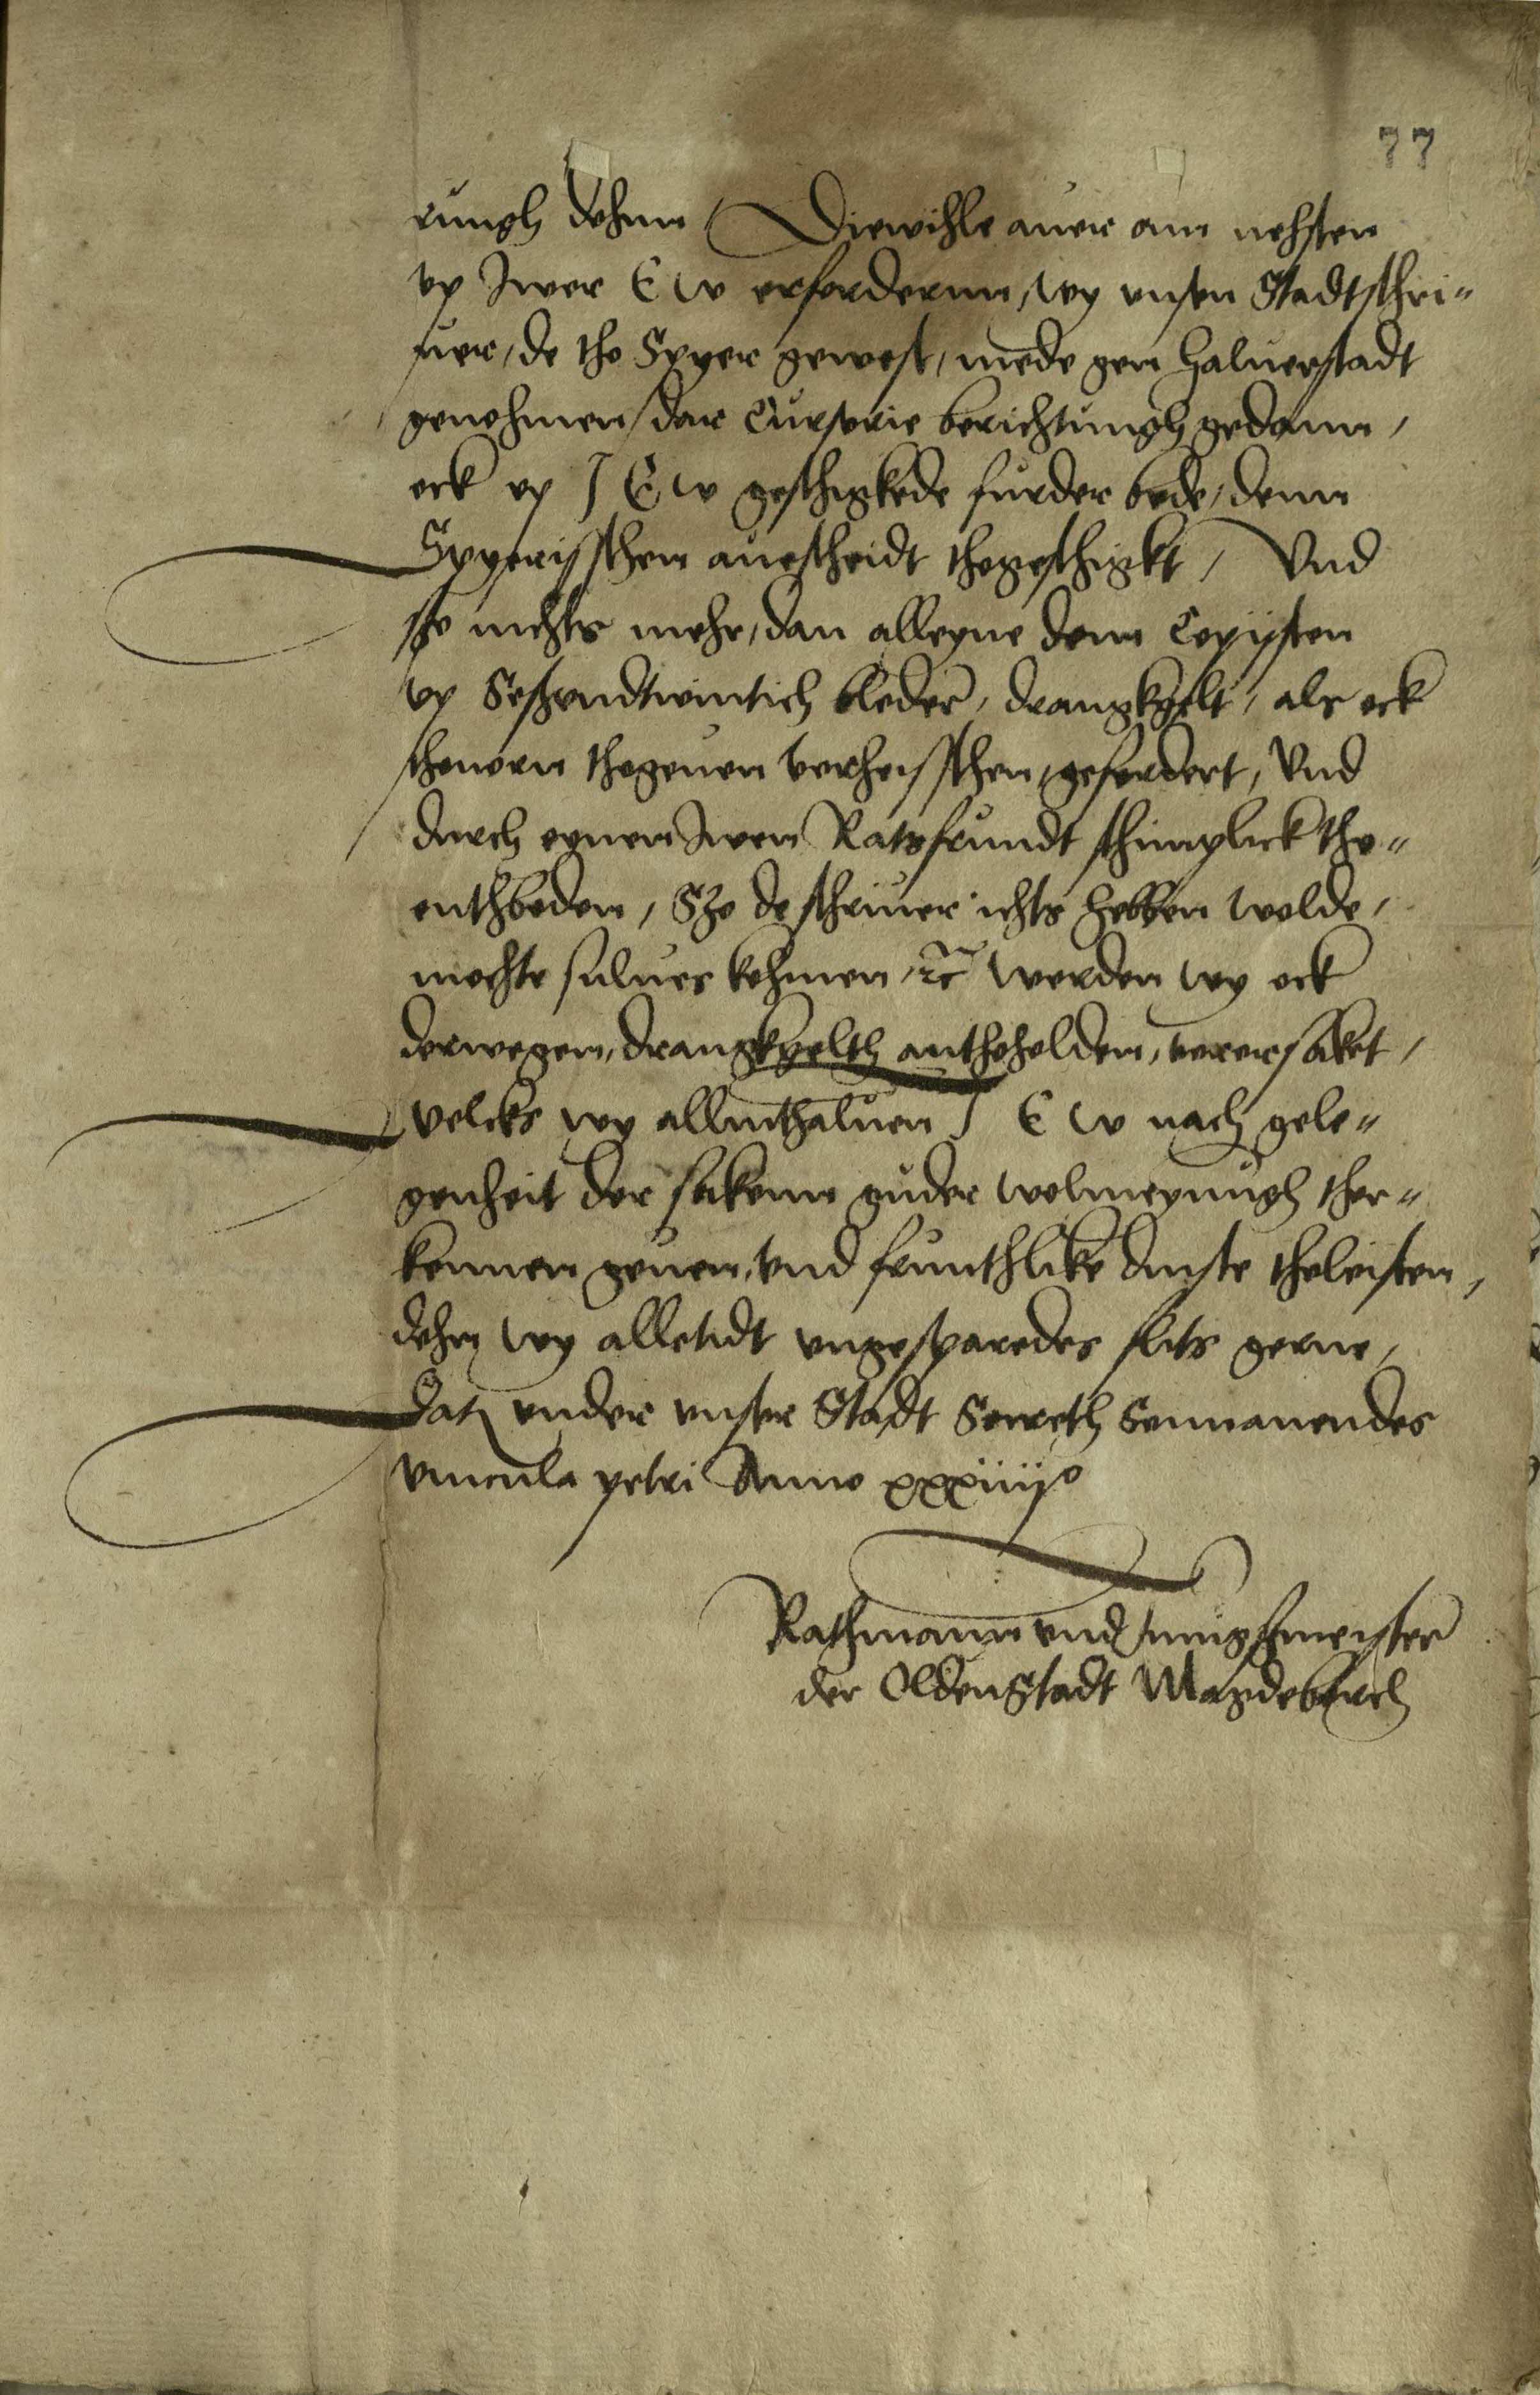 77
rungh dohnn / Diewihle auer am nehsten
vp Jwer E W erfordernn, wy vnsen Stadtschri„
uer, de tho Spyer gewest, mede gen Haluerstadt
genohmen, dar Cursorie berichtungh gedann,
ock vp J E W geschigkede furder bede, denn
Spyerisschen auescheidt thogeschigkt, Vnd
sso nichts mehr, dan alleyne dem Copijsten
vp Sessvndtwintich bleder, drangkgelt, als ock
thouorn thogeuen verheisschen, gefordert, Vnd
durch eynen Jwen Ratsfrundt schimplick tho„
enthboden, Szo de schriuer ichts hebben wolde,
mochte sulues kohmen, etc Werden wy ock
derwegen, drangkgelth anthoholden, verorsaket,
Welcks wy allinthaluen J E W nach gele„
genheit der sakenn guder wolmeynugh thor„
kennen geuen, vnd frunthlike dinste tholeisten,
dohn wy alletidt vngesparedes flits gerne,
Datz vnder vnser Stadt Secreth Sonnauendes
vincula petri Anno xxxiiijo
Rathmann vnd Jnnigsmeyster
der OldenStadt Magdeborch